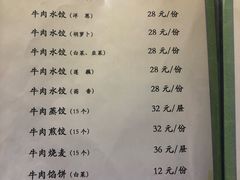 牛肉水饺(洋 葱) 28 元/份
牛肉水饺(胡萝卜) 28 元/份
牛肉水饺(白菜、韭菜) 28 元/份
牛肉水饺(莲 藕) 28 元/份
牛肉水饺(茴 香) 28 元/份
牛肉蒸饺(15个) 32 元/屉
牛肉煎饺(15个) 32 元/份
牛肉烧麦(15个) 36 元/屉
牛肉馅饼(白菜) 12 元/份